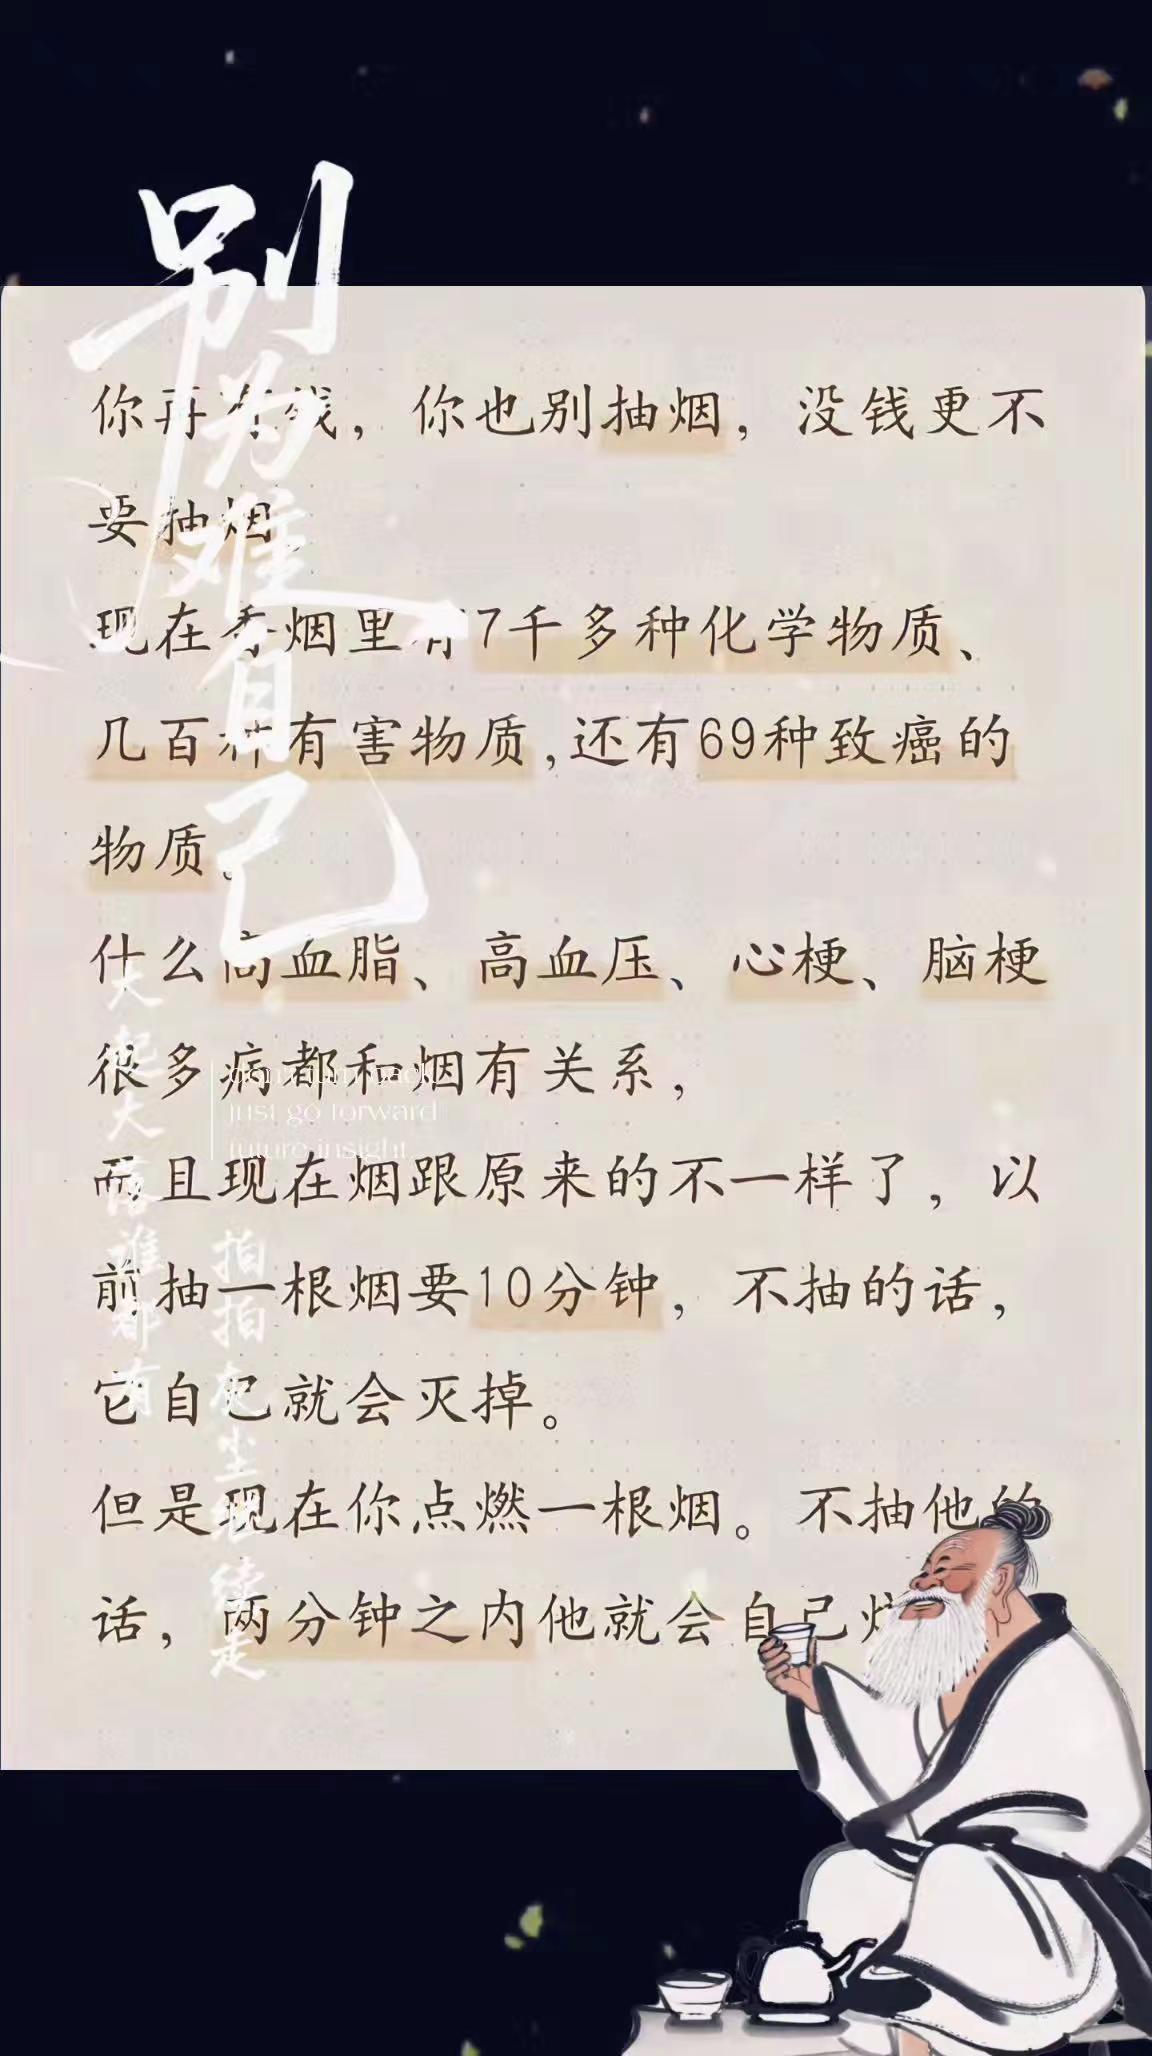 别为难自己
你再有钱，你也别抽烟，没钱更不
要抽烟
现在香烟里有7千多种化学物质、
几百种有害物质,还有69种致癌的
物质。
什么高血脂、高血压、心梗、脑梗
很多病都和烟有关系，
而且现在烟跟原来的不一样了，以
前抽一根烟要10分钟，不抽的话，
它自己就会灭掉。
但是现在你点燃一根烟。不抽他的
话，两分钟之内他就会自己
大起大落谁都有
拍拍灰尘继续走
don't turn back
just go forward
future insight